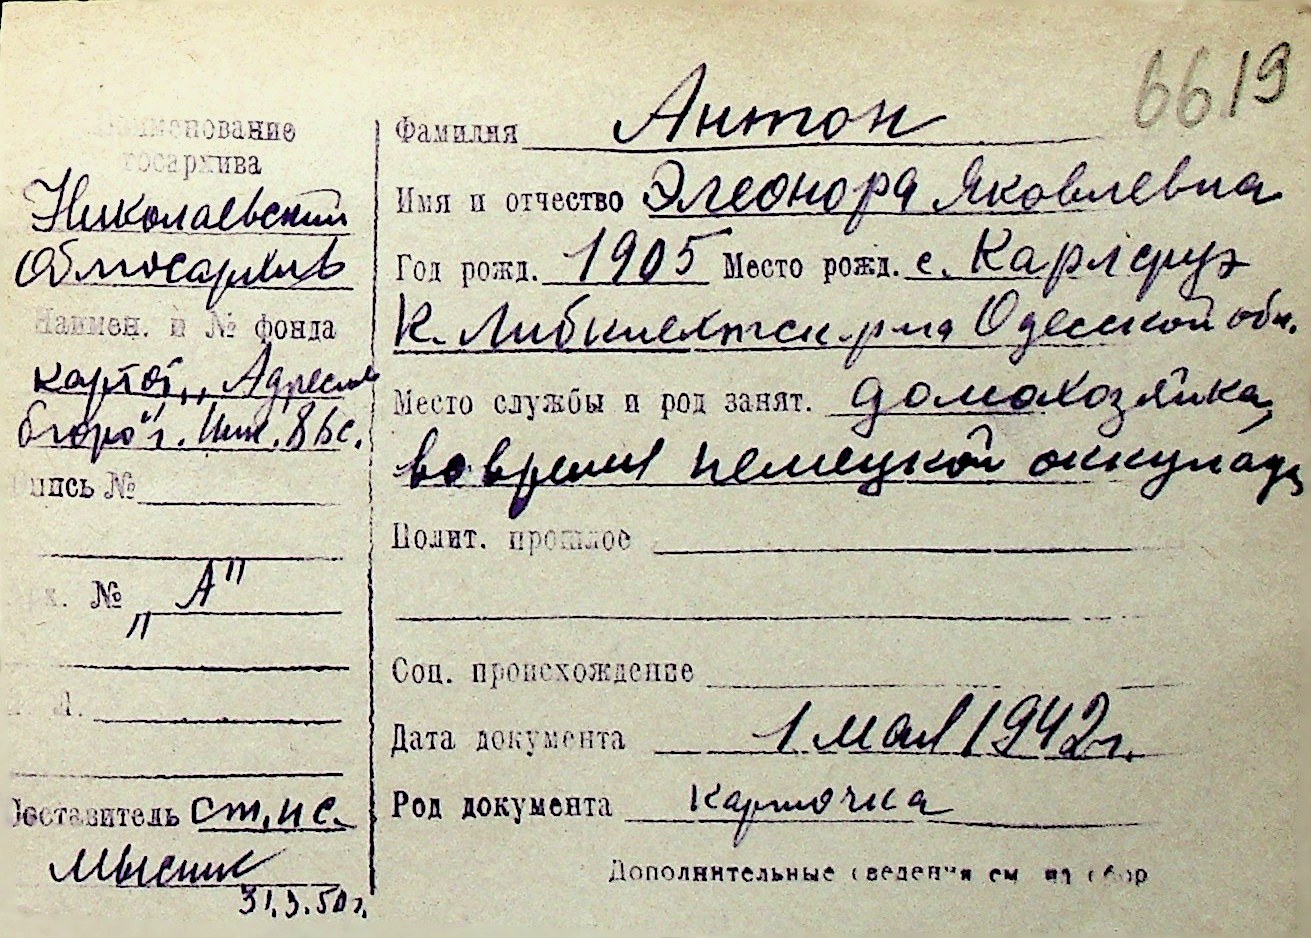 6619
Наименование
госархива
Николаевский
Облгосархив
Наимен. и № фонда
картот. „Адресное
бюро" г. Ник.
Опись №
Арх. № „А"
Л.
Составитель ст. н с.
Мысник
31.3.50 г.
Фамилия Антон
Имя и отчество Элеонора Яковлевна
Год рожд. 1905 Место рожд. с. Карлсруэ
К. Либкнехтск. р-на Одесской обл.
Место службы и род занят. домохозяйка,
во время немецкой оккупац.
Полит. прошлое
Соц. происхождение
Дата документа 1 мая 1942 г.
Род документа карточка
Дополнительные сведения см. на обор